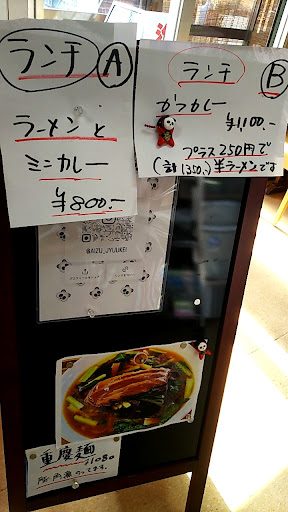 ランチ A
ラーメンと
ミニカレー
¥800.-
ランチ B
カツカレー
¥1,100.-
プラス250円で
(計1350.)半ラーメンです
@AIZU_UYUUKEI
重慶麺
1080